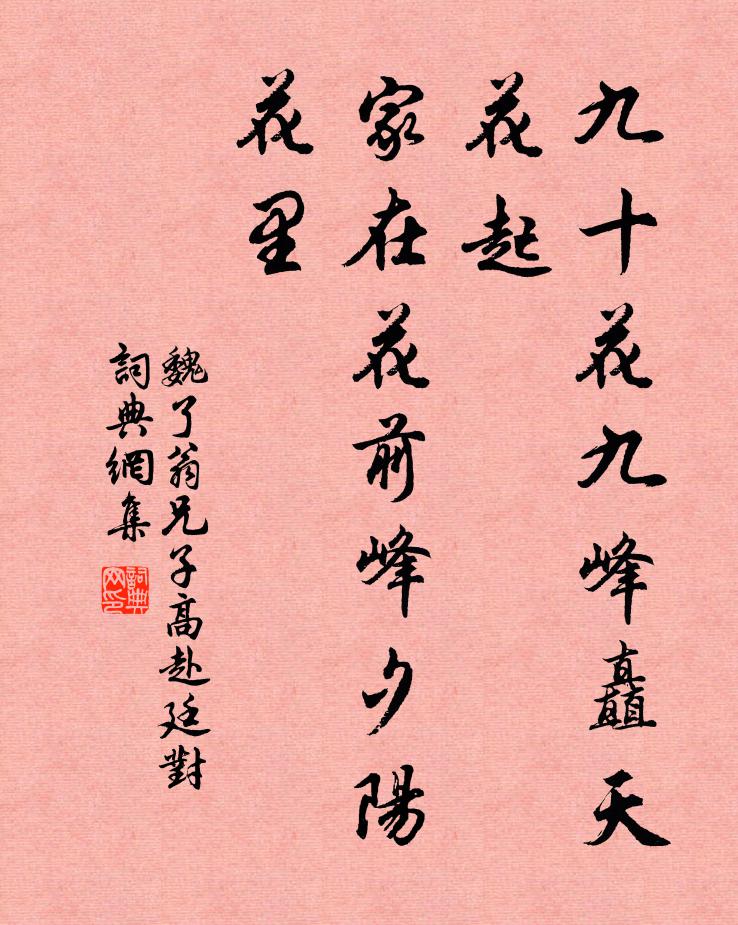 九十花九峰矗天
花起
家在花前峰夕陽
花里
魏了翁兄子高赴廷對
詞典網集
詞典网印